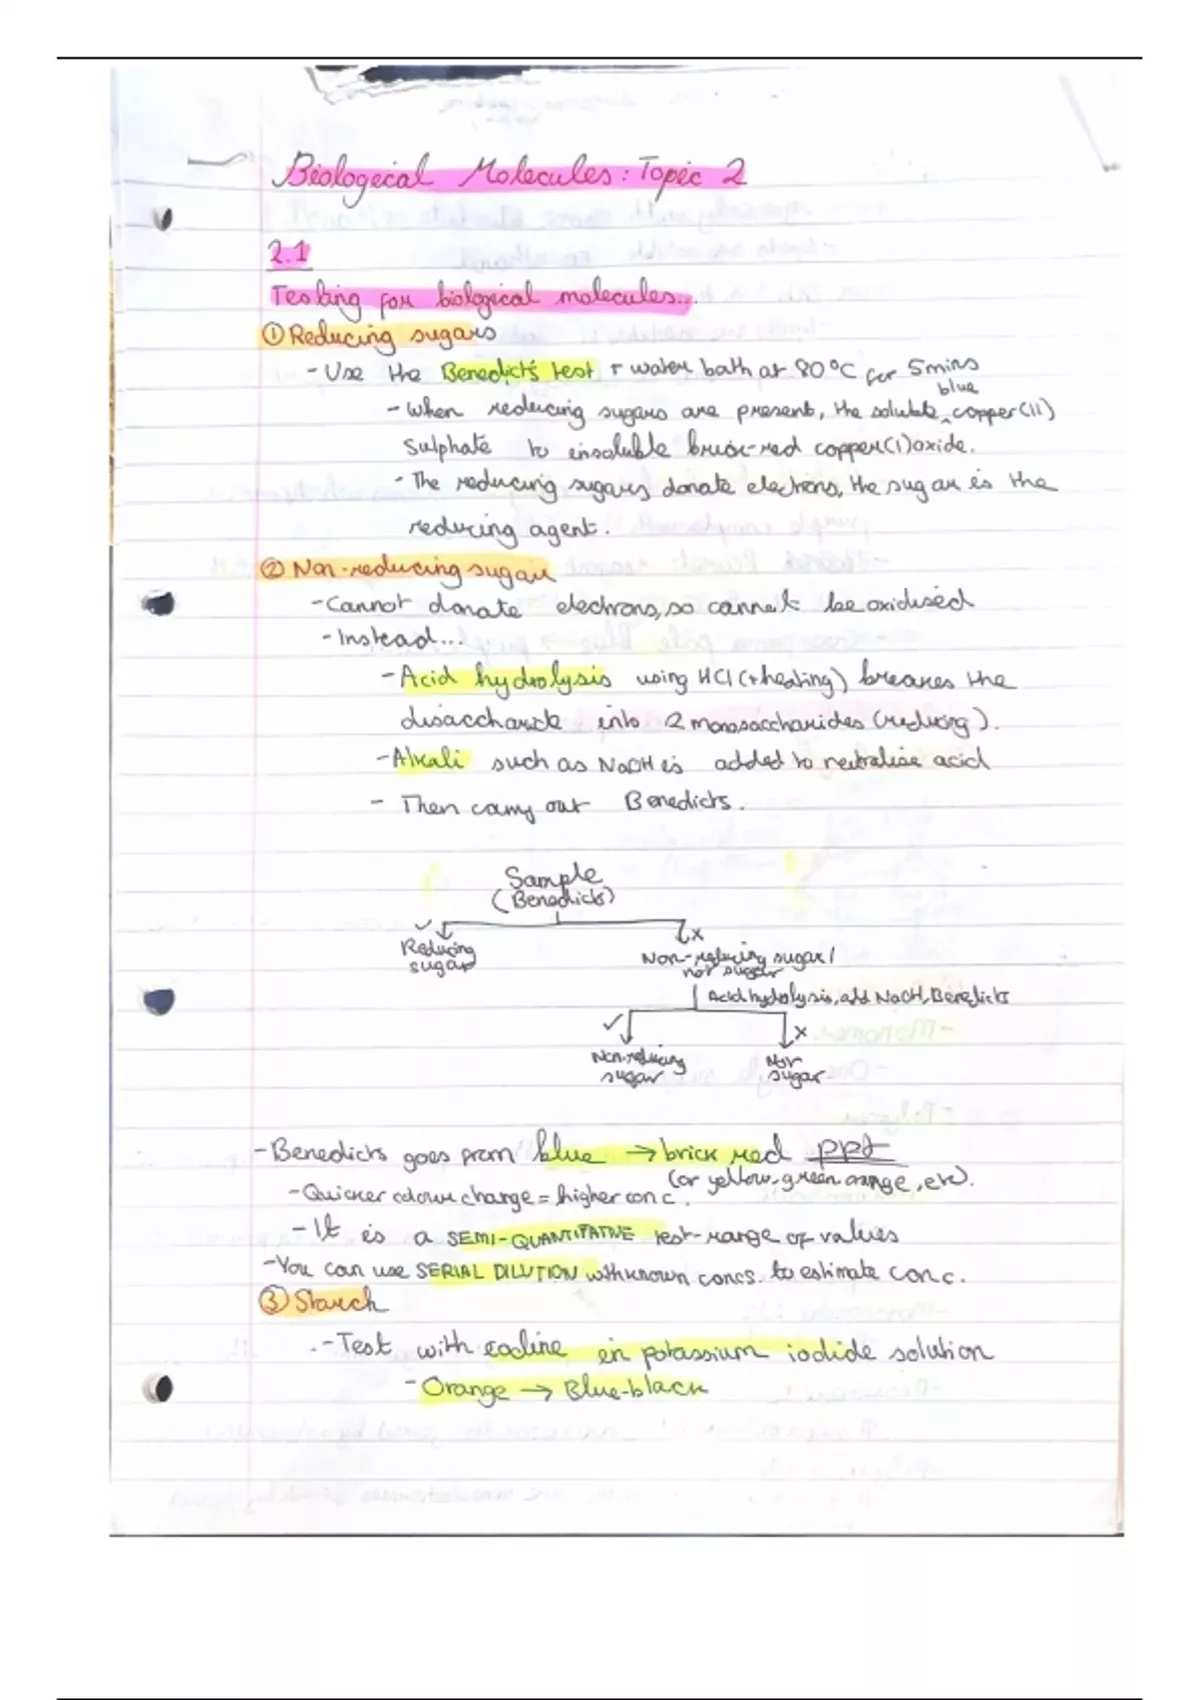 Biological Molecules: Topic 2
2.1
Testing for biological molecules...
① Reducing sugars
- Use the Benedict's test + water bath at 80°C for 5mins
blue
- When reducing sugars are present, the soluble ^ copper(II)
Sulphate to insoluble brick-red copper(I)oxide.
- The reducing sugars donate electrons, the sugar is the
reducing agent.
② Non-reducing sugar
- Cannot donate electrons, so cannot be oxidised
- Instead...
- Acid hydrolysis using HCl (+heating) breaks the
disaccharide into 2 monosaccharides (reducing).
- Alkali such as NaOH is added to neutralise acid
- Then carry out Benedicts.
Sample
(Benedicts)
✓ x
Reducing
sugar
Non-reducing sugar /
not sugar
Acid hydrolysis, add NaOH, Benedicts
✓ x
Non-reducing
sugar
Not
sugar
- Benedicts goes from blue → brick red ppt
(or yellow, green, orange, etc).
- Quicker colour change = higher conc.
- It is a SEMI-QUANTITATIVE test - range of values
- You can use SERIAL DILUTION with known concs. to estimate conc.
③ Starch
- Test with iodine in potassium iodide solution
- Orange → Blue-black